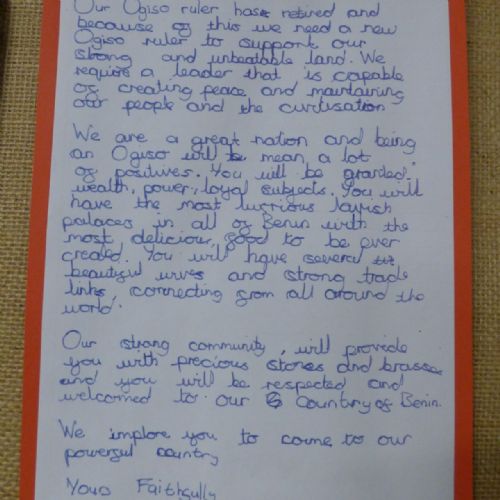 Our Ogiso ruler has retired and
because of this we need a new
Ogiso ruler to support our
strong and unbeatable land. We
require a leader that is capable
of creating peace and maintaining
our people and the civilisation
We are a great nation and being
an Ogiso will be mean a lot
of positives. You will be granted
wealth, power, loyal subjects. You will
have the most lucrious lavish
palaces in all of Benin with the
most delicious food to be ever
created. You will have several
beautiful wives and strong trade
links, connecting from all around the
world.
Our strong community, will provide
you with precious stones and brasses
and you will be respected and
welcomed to our Country of Benin.
We implore you to come to our
powerful country
Yours Faithfully